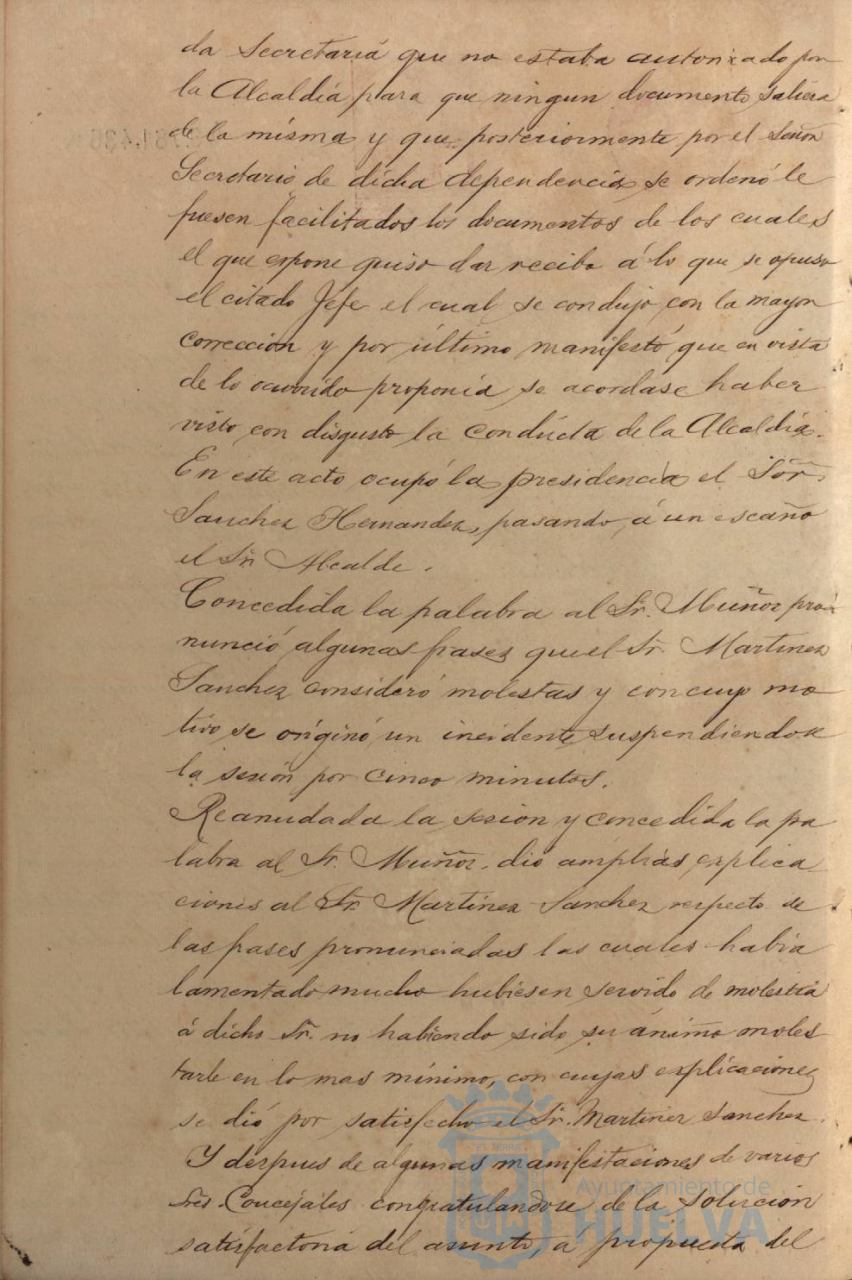 da Secretaría que no estaba autorizado por
la Alcaldía para que ningun documento saliera
de la misma y que posteriormente por el Señor
Secretario de dicha dependencia se ordenó le
fuesen facilitados los documentos de los cuales
el que expone quiso dar recibo á lo que se opuso
el citado Jefe el cual se condujo con la mayor
corrección y por último manifestó que en vista
de lo ocurrido proponia se acordase haber
visto con disgusto la conducta de la Alcaldía.
En este acto ocupó la presidencia el Sör.
Sanchez Hernandez, pasando á un escaño
el Sr. Alcalde.
Concedida la palabra al Sr. Muñoz pro-
nunció algunas frases que el Sr. Martinez
Sanchez consideró molestas y con cuyo mo
tivo se originó un incidente suspendiendose
la sesión por cinco minutos.
Reanudada la sesion y concedida la pa
labra al Sr. Muñoz, dió amplias explica
ciones al Sr. Martinez Sanchez respecto de
las frases pronunciadas las cuales habia
lamentado mucho hubiesen servido de molestia
á dicho Sr. no habiendo sido su ánimo moles
tarle en lo mas mínimo, con cuyas explicaciones
se dió por satisfecho el Sr. Martinez Sanchez.
Y despues de algunas manifestaciones de varios
Sres. Concejales congratulandose de la solucion
satisfactoria del asunto a propuesta del
Ayuntamiento de
HUELVA